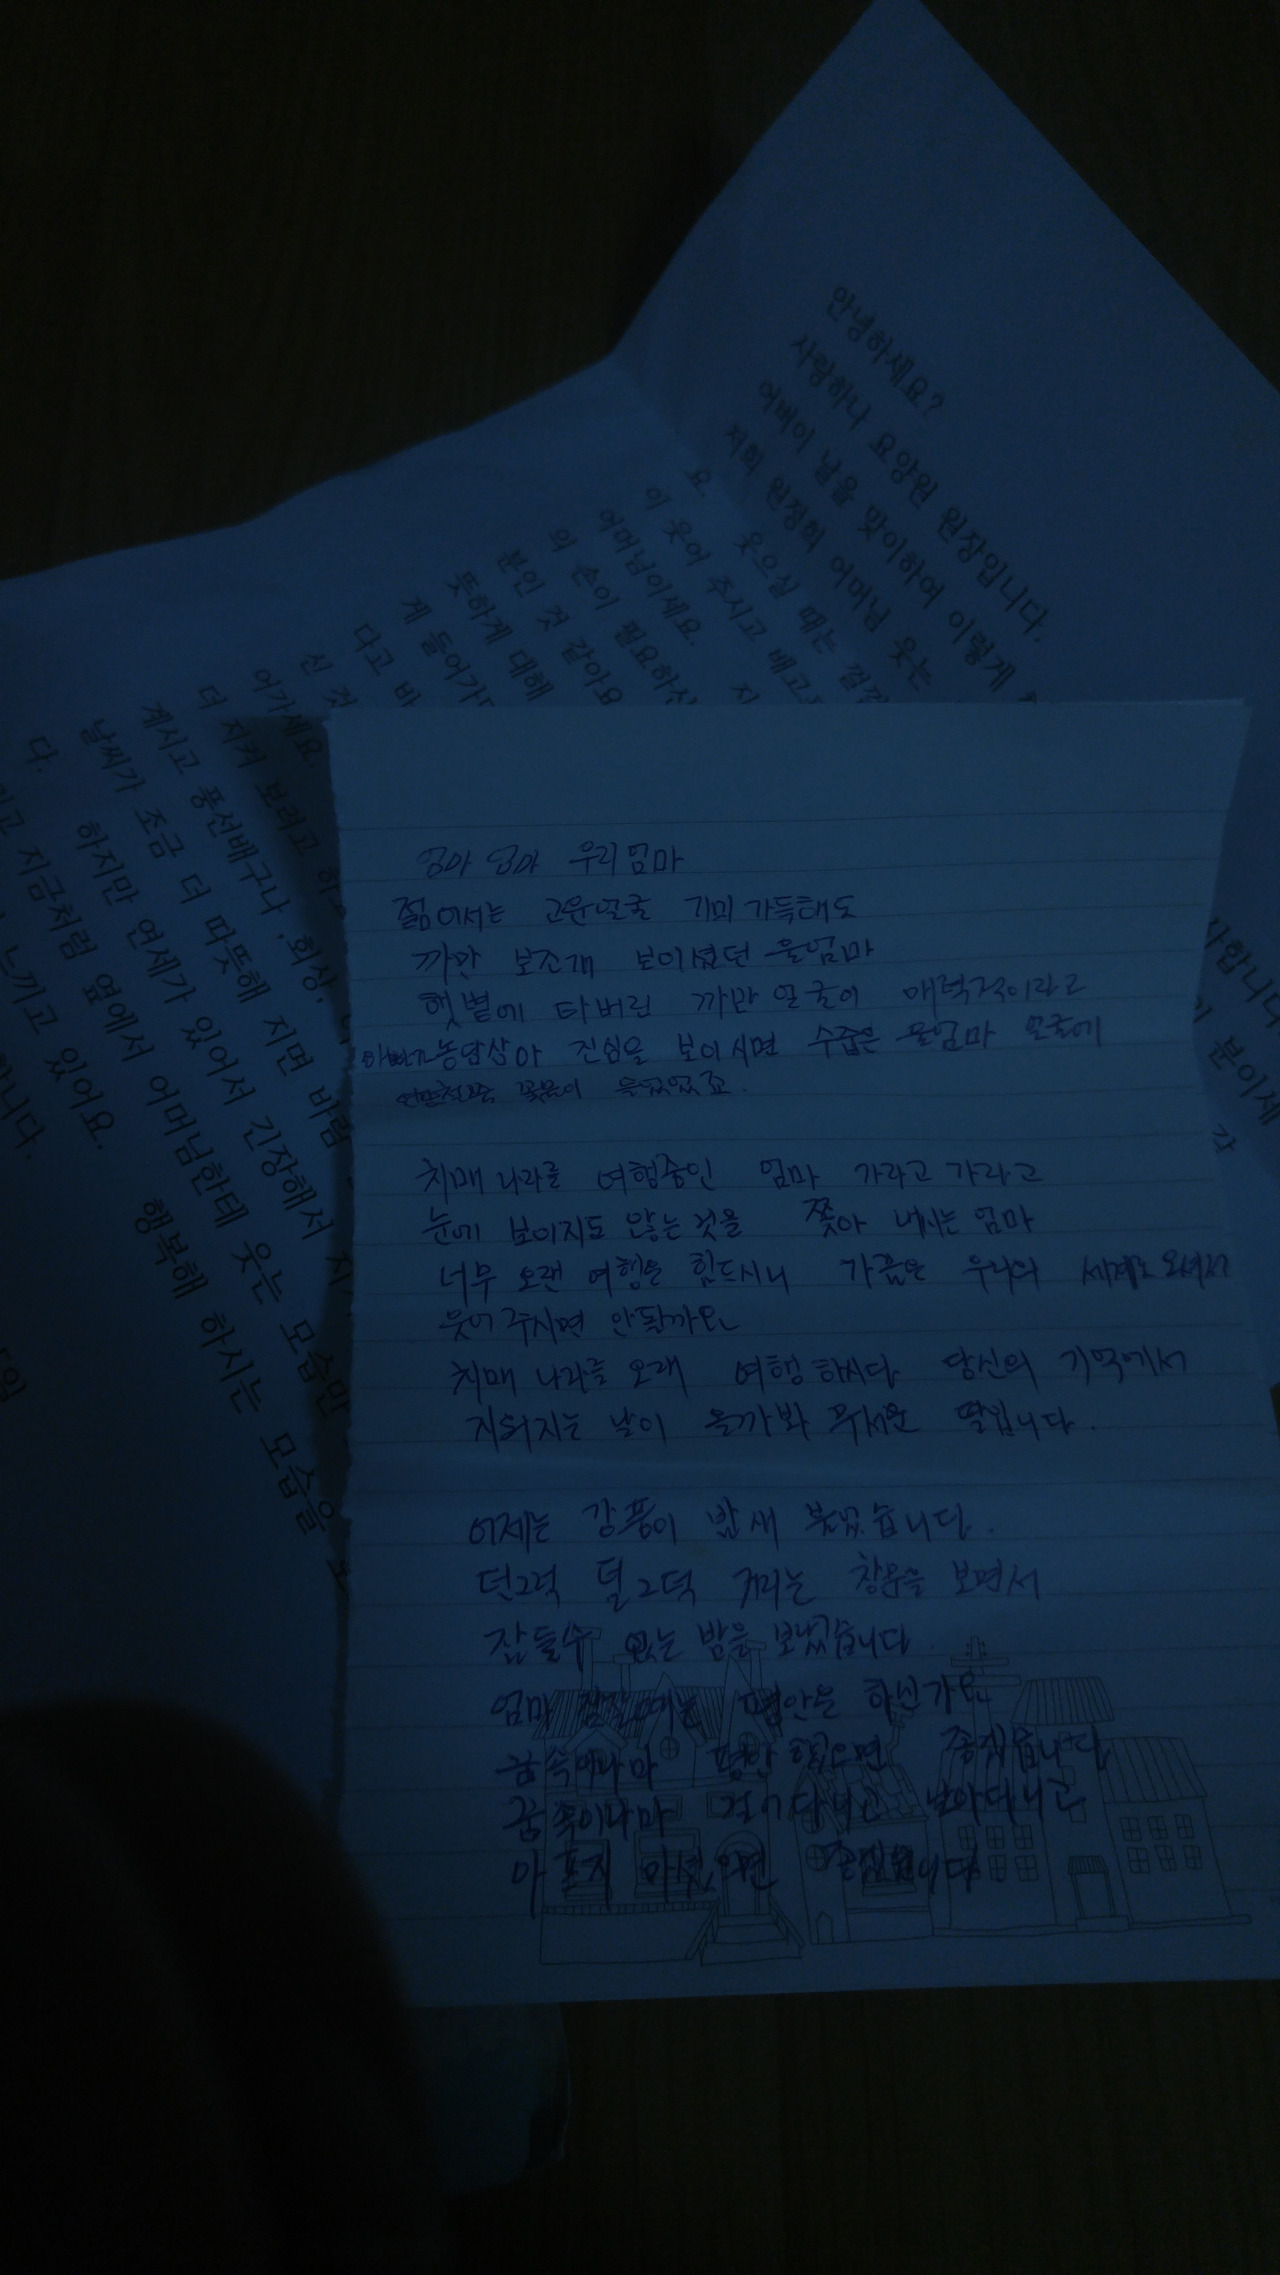 안녕하세요?
사랑하나 요양원 원장입니다.
어버이 날을 맞이하여 이렇게
저희 원정희 어머님 웃는
요. 웃으실 때는 껄껄
이 웃어 주시고 배고
어머님이세요.
의 손이 필요하신
분인 것 같아요
뜻하게 대해
게 들어가
다고 바
신 것
어가세요
더 지켜 보려고 하
계시고 풍선배구나, 회상,
날씨가 조금 더 따뜻해 지면 바람
하지만 연세가 있어서 긴장해서 지
다.
고 지금처럼 옆에서 어머님한테 웃는 모습만
느끼고 있어요.
행복해 하시는 모습을 보
니다.
사합니다
분이세
엄마 엄마 우리엄마
젊어서는 고운얼굴 기미 가득해도
까만 보조개 보이셨던 울엄마
햇볕에 타버린 까만 얼굴이 매력적이라고
아빠가 농담삼아 진심을 보이시면 수줍은 울엄마 얼굴에
꽃물이 들었었죠.
치매 나라를 여행중인 엄마 가라고 가라고
눈에 보이지도 않는 것을 쫓아 내시는 엄마
너무 오랜 여행은 힘드시니 가끔은 우리의 세계로 오셔서
웃어주시면 안될까요
치매 나라를 오래 여행하시다 당신의 기억에서
지워지는 날이 올까봐 무서운 딸입니다.
어제는 강풍이 밤새 불었습니다.
던그럭 덜그덕 거리는 창문을 보면서
잠들수 없는 밤을 보냈습니다
엄마 잠잘때는 평안은 하신가요
꿈속이나마 평안했으면 좋겠습니다
꿈속이나마 걸어다니고 날아다니고
아프지 마셨으면 좋겠습니다.